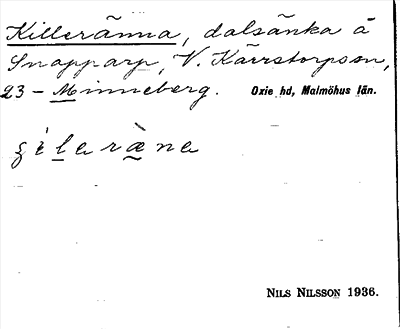 Killeränna, dalsänka å
Snapparp, V. Kärrstorpssn,
23 - Minneberg. Oxie hd, Malmöhus län.
ʒ̀ìlerǽne
NILS NILSSON 1936.